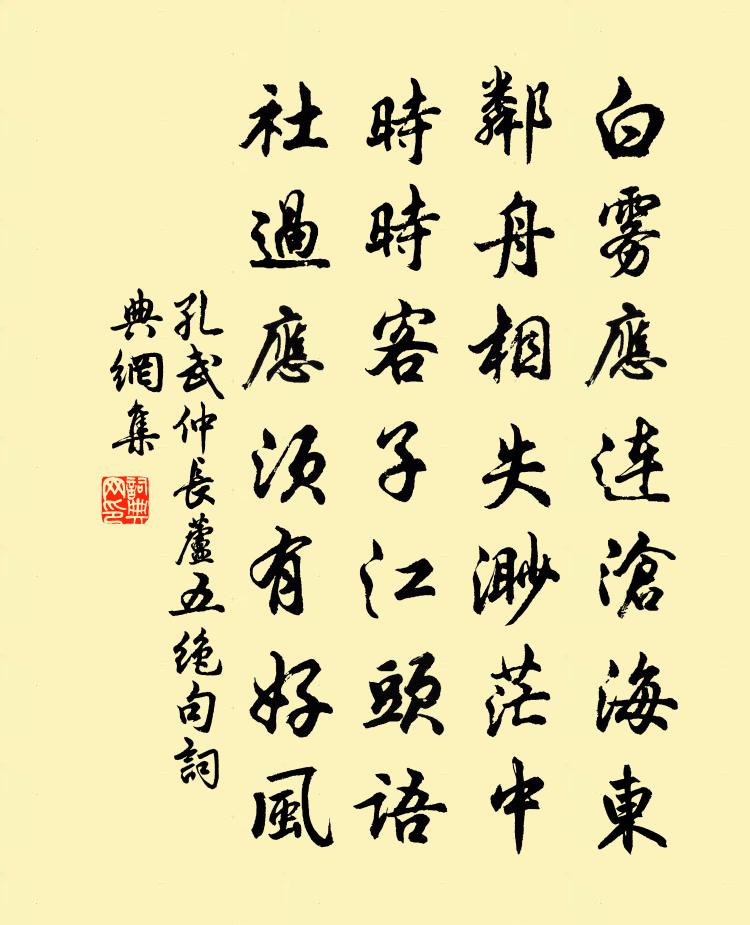 白雾應連滄海東
鄰舟相失渺茫中
時時客子江頭語
社過應須有好風
孔武仲長蘆五绝句詞
典網集
詞典
网印